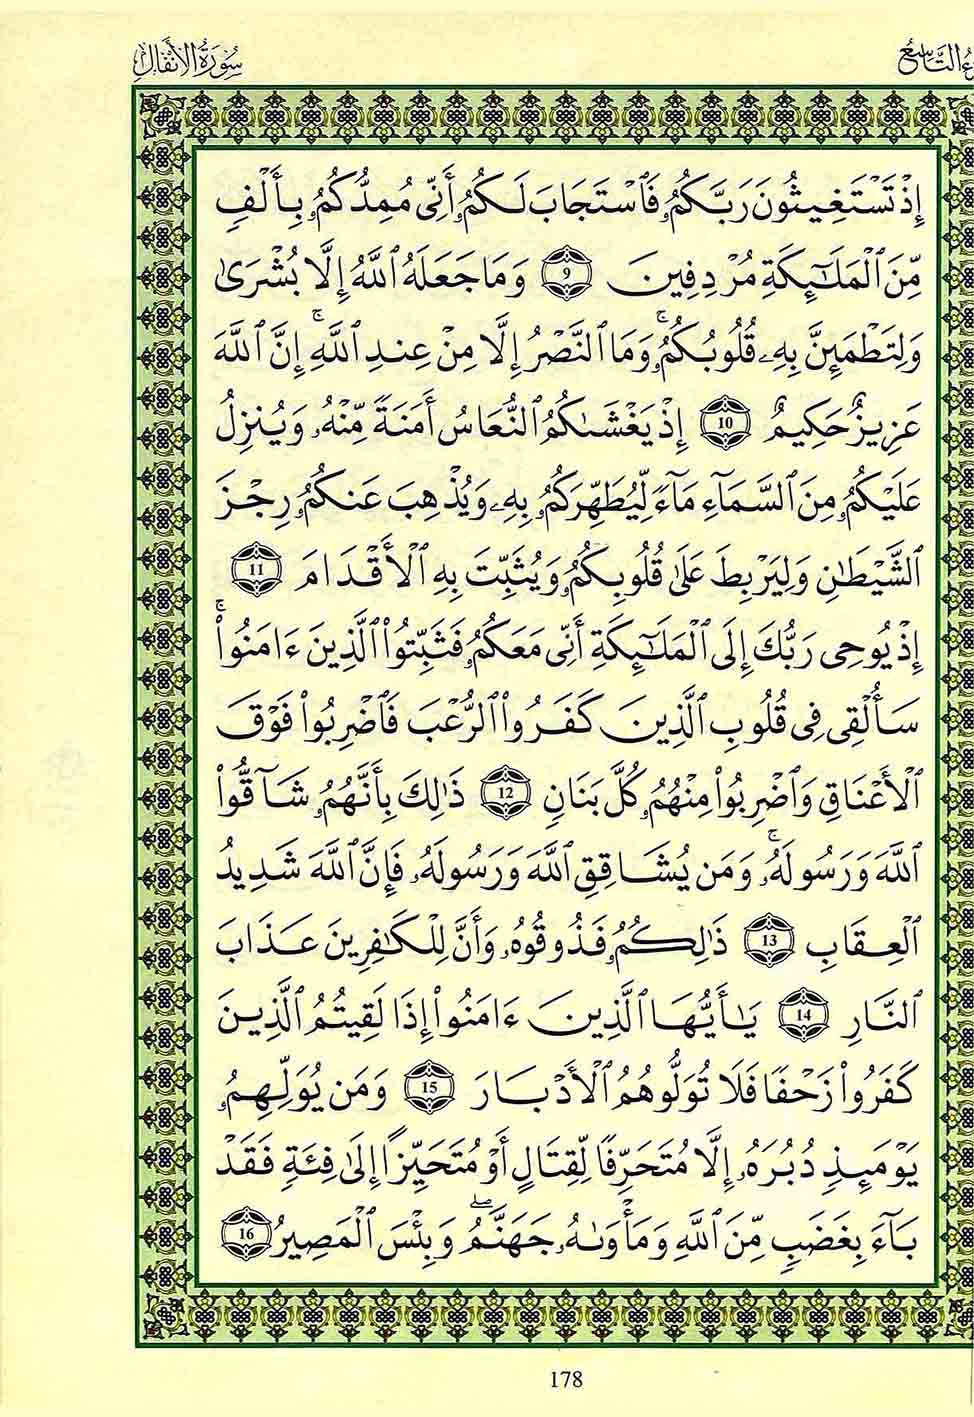 ءُ التَّاسِعُ سُورَةُ الأَنفَالِ
إِذْ تَسْتَغِيثُونَ رَبَّكُمُۥ فَٱسْتَجَابَ لَكُمُۥٓ أَنِّى مُمِدُّكُمُۥ بِأَلْفٍ
مِّنَ ٱلْمَلَـٰٓئِكَةِ مُرْدِفِينَ 9 وَمَا جَعَلَهُ ٱللَّهُ إِلَّا بُشْرَىٰ
وَلِتَطْمَئِنَّ بِهِۦ قُلُوبُكُمُۥ ۚ وَمَا ٱلنَّصْرُ إِلَّا مِنْ عِندِ ٱللَّهِ ۚ إِنَّ ٱللَّهَ
عَزِيزٌ حَكِيمٌ 10 إِذْ يَغْشَىٰكُمُ ٱلنُّعَاسُ أَمَنَةً مِّنْهُۥ وَيُنزِلُ
عَلَيْكُمُۥ مِنَ ٱلسَّمَآءِ مَآءً لِّيُطَهِّرَكُمُۥ بِهِۦ وَيُذْهِبَ عَنكُمُۥ رِجْزَ
ٱلشَّيْطَـٰنِ وَلِيَرْبِطَ عَلَىٰ قُلُوبِكُمُۥ وَيُثَبِّتَ بِهِ ٱلْأَقْدَامَ 11
إِذْ يُوحِى رَبُّكَ إِلَى ٱلْمَلَـٰٓئِكَةِ أَنِّى مَعَكُمُۥ فَثَبِّتُوا۟ ٱلَّذِينَ ءَامَنُوا۟ ۚ
سَأُلْقِى فِى قُلُوبِ ٱلَّذِينَ كَفَرُوا۟ ٱلرُّعْبَ فَٱضْرِبُوا۟ فَوْقَ
ٱلْأَعْنَاقِ وَٱضْرِبُوا۟ مِنْهُمُۥ كُلَّ بَنَانٍ 12 ذَٰلِكَ بِأَنَّهُمُۥ شَآقُّوا۟
ٱللَّهَ وَرَسُولَهُۥ ۚ وَمَن يُشَاقِقِ ٱللَّهَ وَرَسُولَهُۥ فَإِنَّ ٱللَّهَ شَدِيدُ
ٱلْعِقَابِ 13 ذَٰلِكُمُۥ فَذُوقُوهُۥ وَأَنَّ لِلْكَـٰفِرِينَ عَذَابَ
ٱلنَّارِ 14 يَـٰأَيُّهَا ٱلَّذِينَ ءَامَنُوٓا۟ إِذَا لَقِيتُمُ ٱلَّذِينَ
كَفَرُوا۟ زَحْفًا فَلَا تُوَلُّوهُمُ ٱلْأَدْبَارَ 15 وَمَن يُوَلِّهِمُۥ
يَوْمَئِذٍ دُبُرَهُۥٓ إِلَّا مُتَحَرِّفًا لِّقِتَالٍ أَوْ مُتَحَيِّزًا إِلَىٰ فِئَةٍ فَقَدْ
بَآءَ بِغَضَبٍ مِّنَ ٱللَّهِ وَمَأْوَىٰهُۥ جَهَنَّمُ ۖ وَبِئْسَ ٱلْمَصِيرُ 16
178